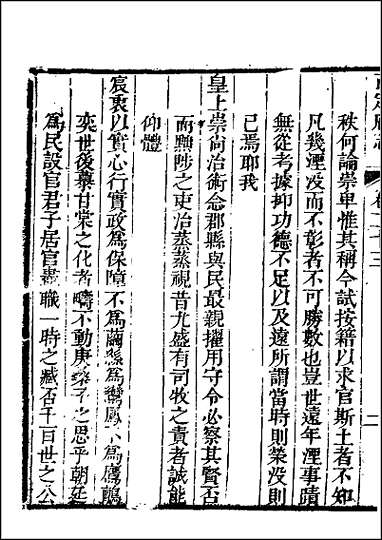 秩何論崇卑惟其稱今試按籍以求官斯土者不知
凡幾湮没而不彰者不可勝數也豈世遠年湮事蹟
無從考據抑功德不足以及遠所謂當時則榮没則
已焉耶我
皇上崇尚治術念郡縣與民最親擢用守令必察其賢否
而黜陟之吏治蒸蒸視昔尤盛有司牧之責者誠能
仰體
宸衷以實心行實政為保障不為繭絲為鸞鳳不為鷹鸇
奕世後摹甘棠之化者疇不動庚桑子之思乎朝廷
為民設官君子居官盡職一時之臧否千百世之公